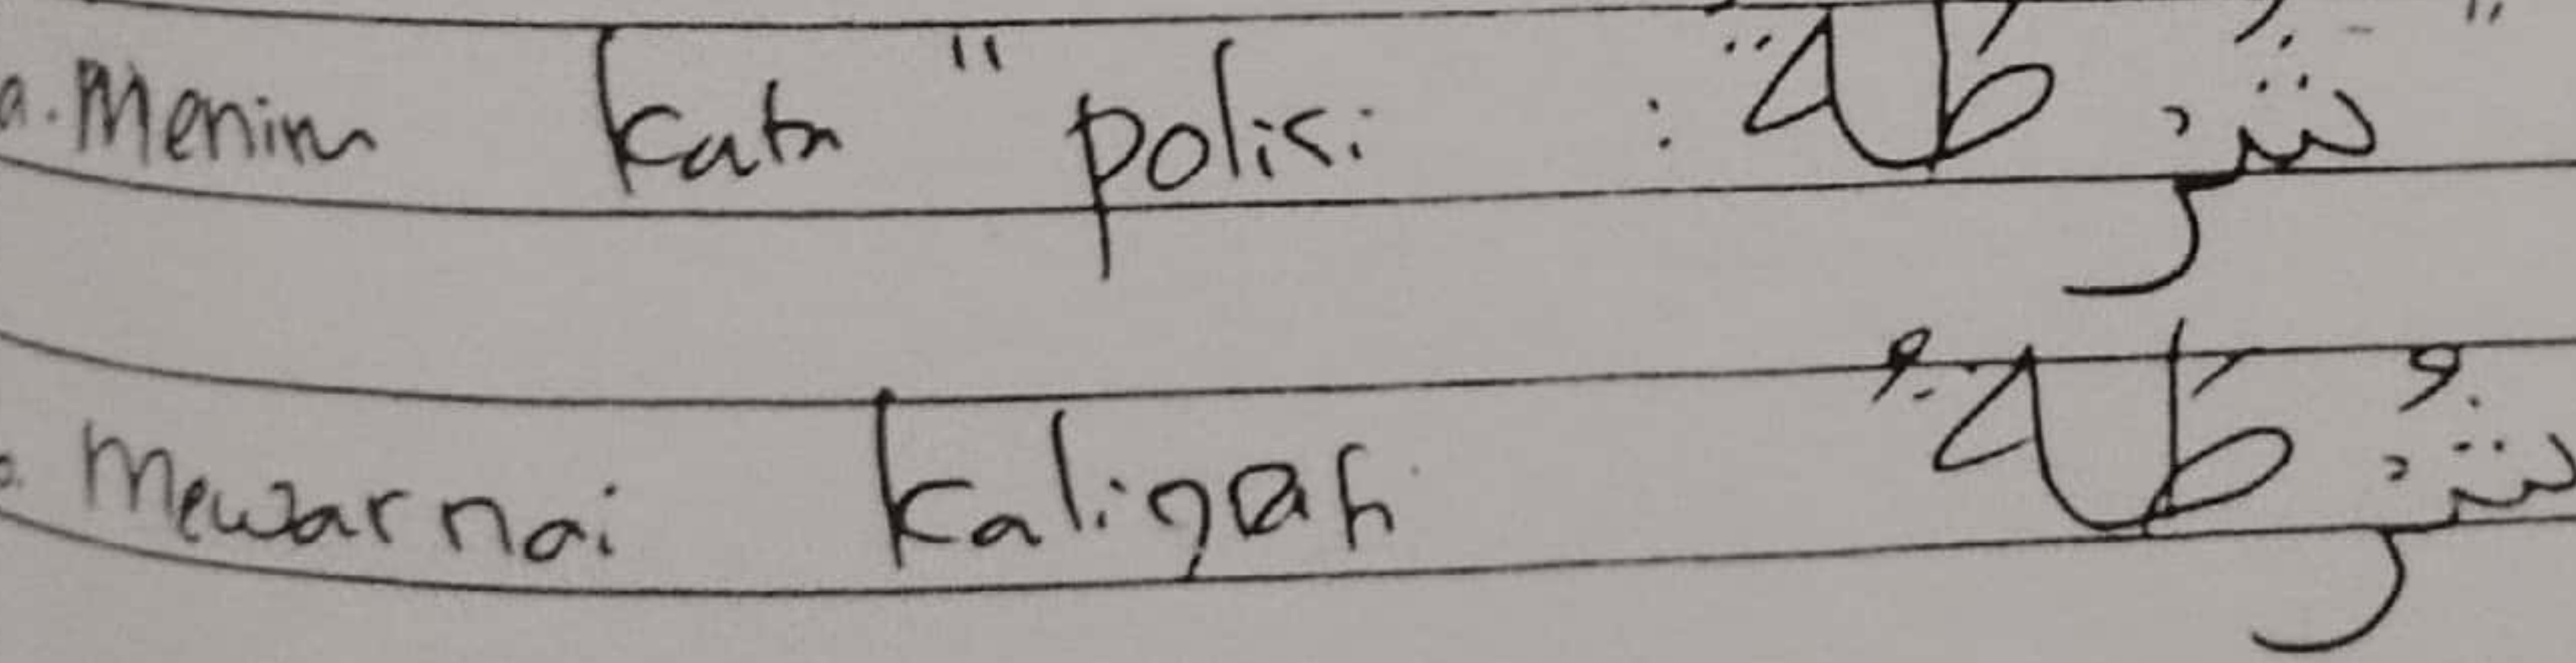 a. Meniru kata " polisi : شُرْطَة "
Mewarnai kaligrafi شُرْطَةٌ